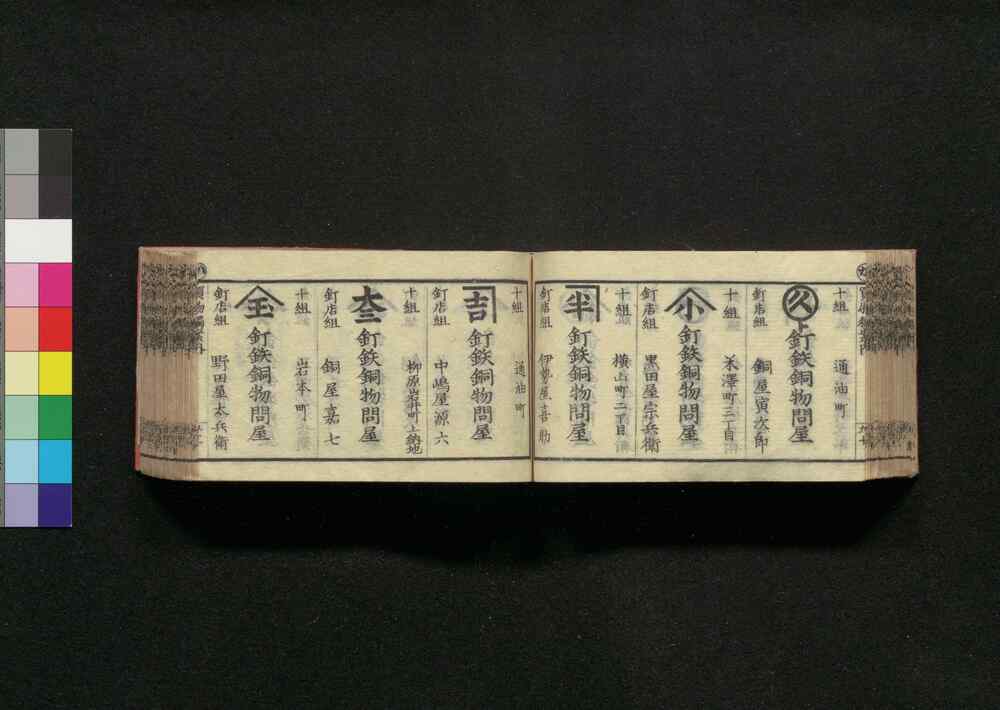 十組 通油町
久ト 釘鉄銅物問屋
釘店組 銅屋寅次郎
十組 米澤町三丁目
小 釘鉄銅物問屋
釘店組 黒田屋宗兵衛
十組 横山町二丁目
半 釘鉄銅物問屋
釘店組 伊勢屋喜助
十組 通油町
吉 釘鉄銅物問屋
釘店組 中嶋屋源六
十組 柳原岩井町上納地
大三 釘鉄銅物問屋
釘店組 銅屋嘉七
十組 岩本町
玉 釘鉄銅物問屋
釘店組 野田屋太兵衛